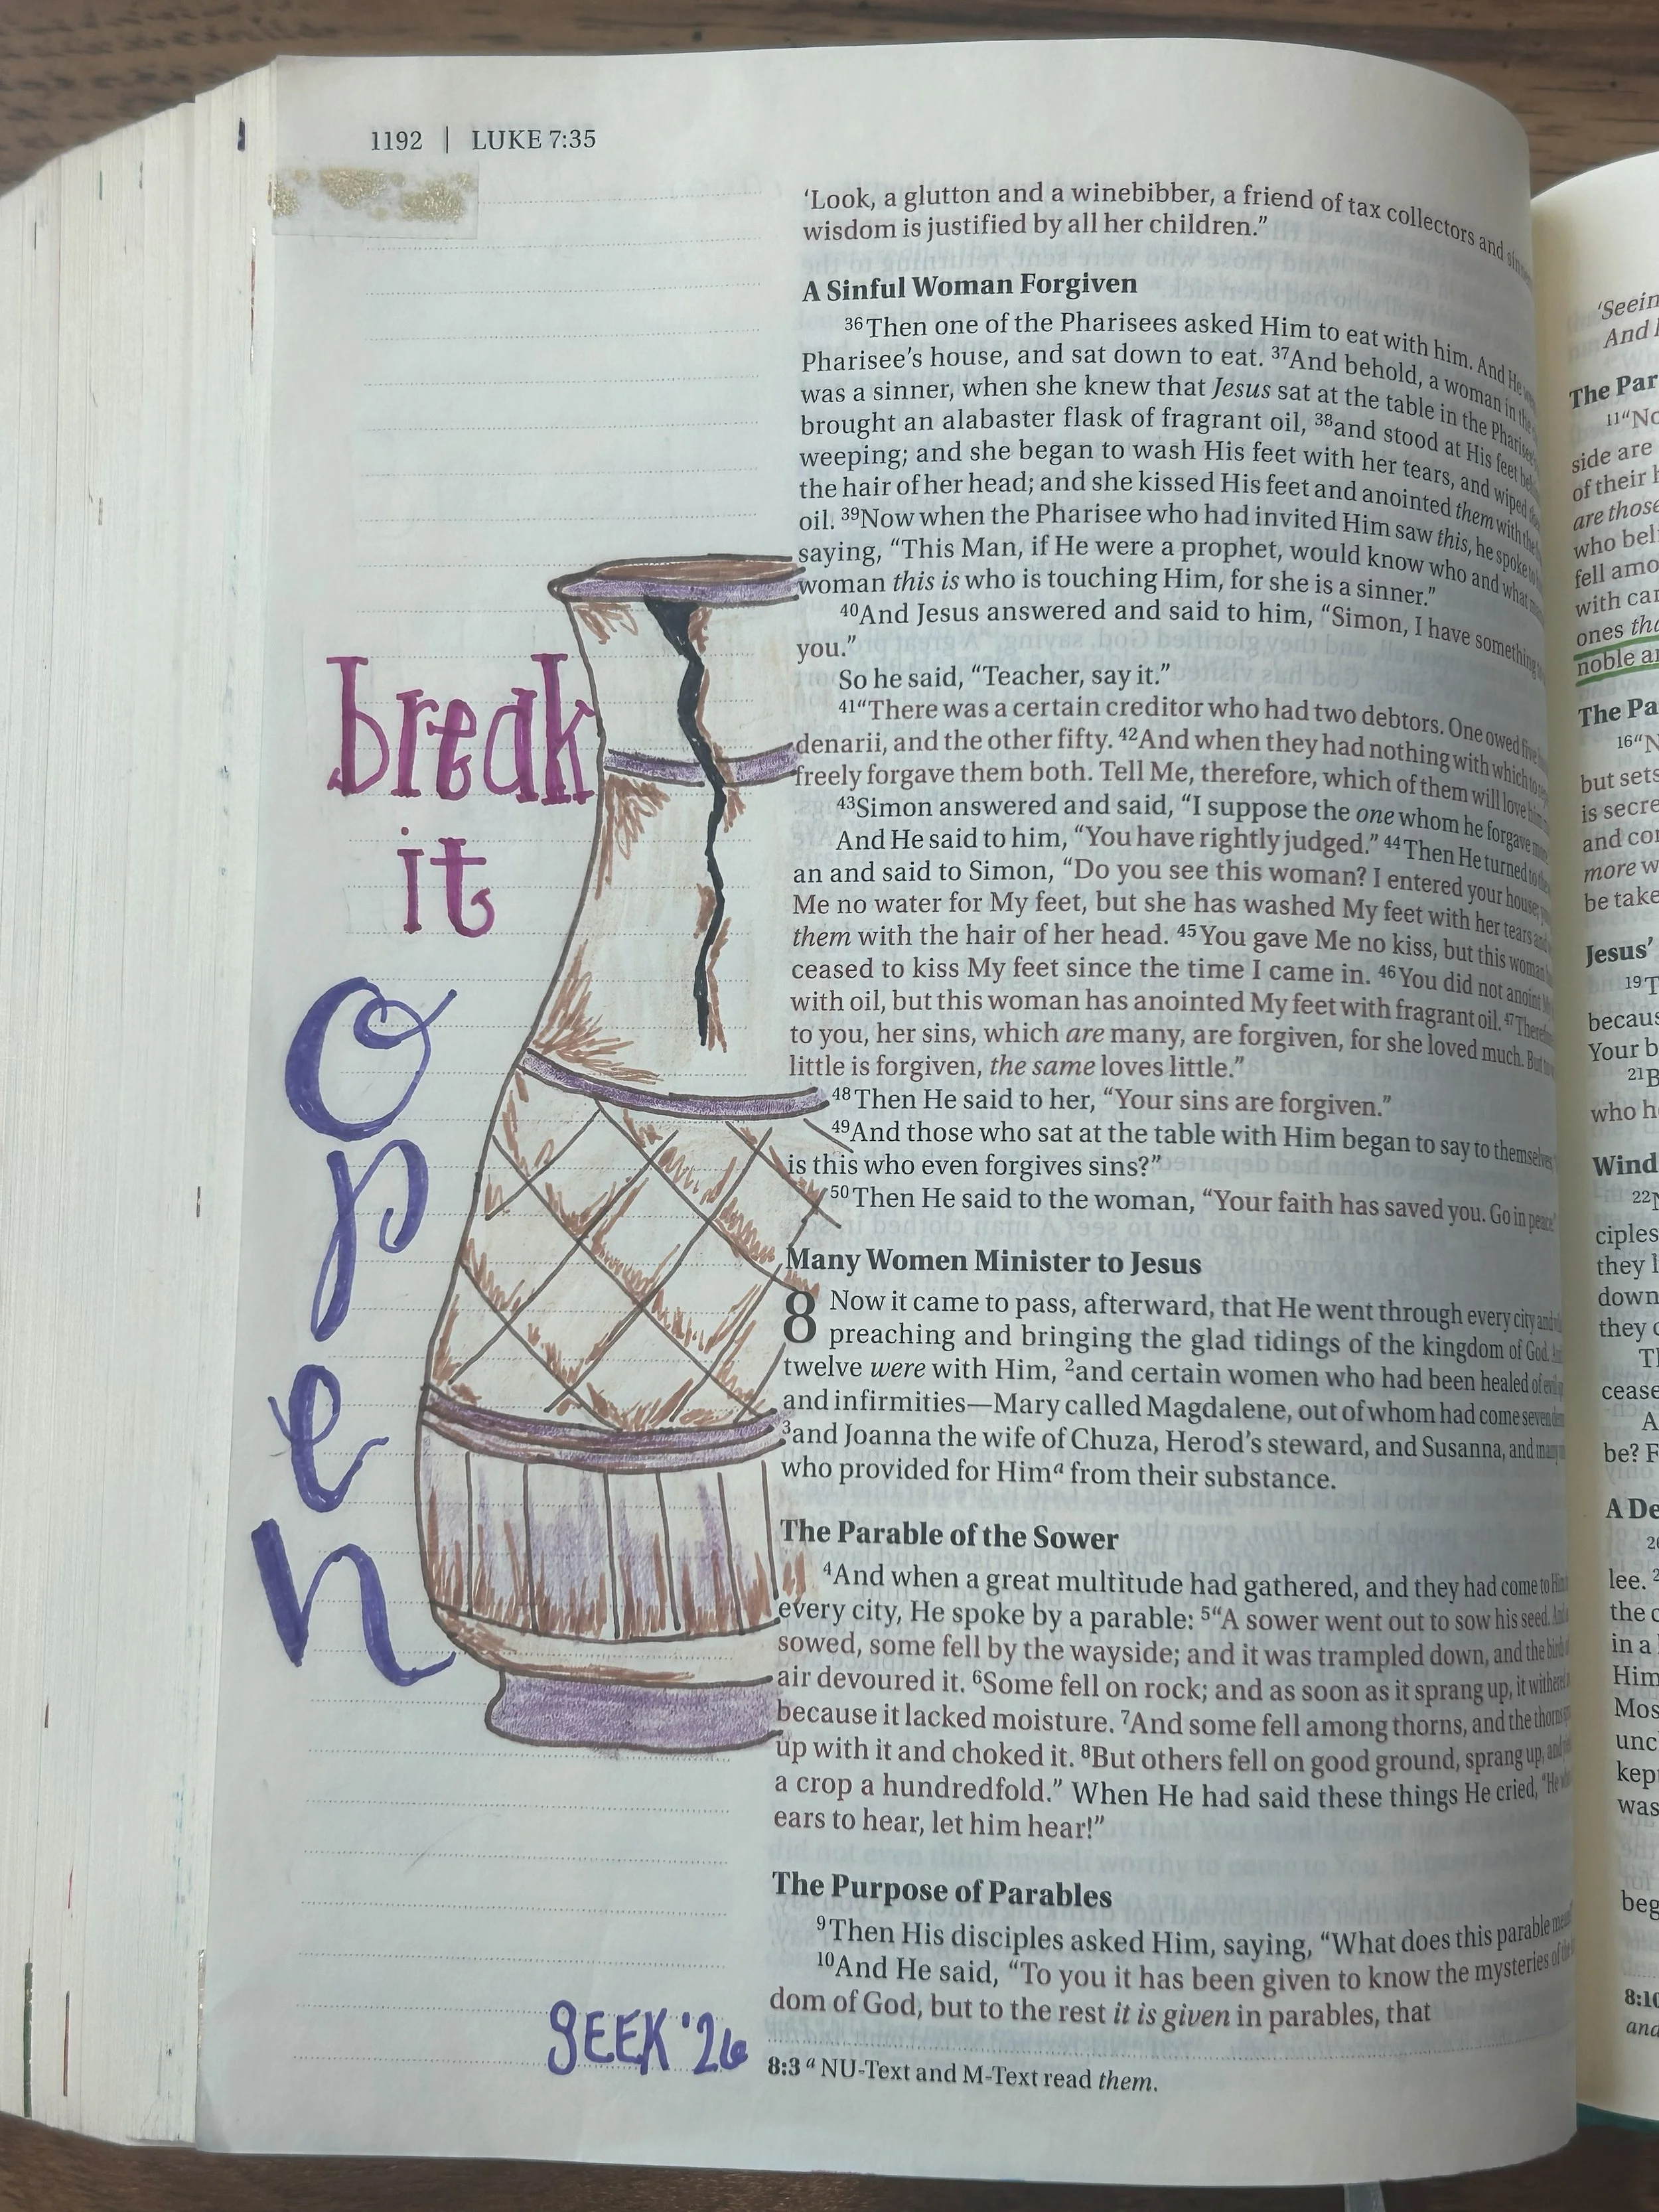 1192 | LUKE 7:35
‘Look, a glutton and a winebibber, a friend of tax collectors and
wisdom is justified by all her children.”
A Sinful Woman Forgiven
36Then one of the Pharisees asked Him to eat with him. And He
Pharisee’s house, and sat down to eat. 37And behold, a woman in the
was a sinner, when she knew that Jesus sat at the table in the
brought an alabaster flask of fragrant oil, 38and stood at His feet
weeping; and she began to wash His feet with her tears, and wiped
the hair of her head; and she kissed His feet and anointed them with the
oil. 39Now when the Pharisee who had invited Him saw this, he spoke
saying, “This Man, if He were a prophet, would know who and what
woman this is who is touching Him, for she is a sinner.”
40And Jesus answered and said to him, “Simon, I have something
you.”
So he said, “Teacher, say it.”
41“There was a certain creditor who had two debtors. One owed
denarii, and the other fifty. 42And when they had nothing with which
freely forgave them both. Tell Me, therefore, which of them will love
43Simon answered and said, “I suppose the one whom he forgave
And He said to him, “You have rightly judged.” 44Then He turned
an and said to Simon, “Do you see this woman? I entered your house;
Me no water for My feet, but she has washed My feet with her tears
them with the hair of her head. 45You gave Me no kiss, but this woman
ceased to kiss My feet since the time I came in. 46You did not anoint
with oil, but this woman has anointed My feet with fragrant oil. 47
to you, her sins, which are many, are forgiven, for she loved much. But
little is forgiven, the same loves little.”
48Then He said to her, “Your sins are forgiven.”
49And those who sat at the table with Him began to say to themselves
is this who even forgives sins?”
50Then He said to the woman, “Your faith has saved you. Go in peace.”
Many Women Minister to Jesus
8 Now it came to pass, afterward, that He went through every city
preaching and bringing the glad tidings of the kingdom of God.
twelve were with Him, 2and certain women who had been healed of
and infirmities—Mary called Magdalene, out of whom had come seven
3and Joanna the wife of Chuza, Herod’s steward, and Susanna, and
who provided for Hima from their substance.
The Parable of the Sower
4And when a great multitude had gathered, and they had come to
every city, He spoke by a parable: 5“A sower went out to sow his seed.
sowed, some fell by the wayside; and it was trampled down, and the
air devoured it. 6Some fell on rock; and as soon as it sprang up, it
because it lacked moisture. 7And some fell among thorns, and the
up with it and choked it. 8But others fell on good ground, sprang up,
a crop a hundredfold.” When He had said these things He cried,
ears to hear, let him hear!”
The Purpose of Parables
9Then His disciples asked Him, saying, “What does this parable
10And He said, “To you it has been given to know the mysteries of
dom of God, but to the rest it is given in parables, that
8:3 a NU-Text and M-Text read them.
break
it
open
SEEK '26
‘Seein
And
The Par
11“No
side are
of their
are those
who
fell amo
with
ones
noble
The Pa
16“N
but sets
is secre
and
more
be take
Jesus’
19T
becaus
Your
21B
who
Wind
22
ciples
they
down
they
T
cease
A
be? F
A De
lee.
the
in a
Him
Mos
unc
kep
was
beg
8:10
and